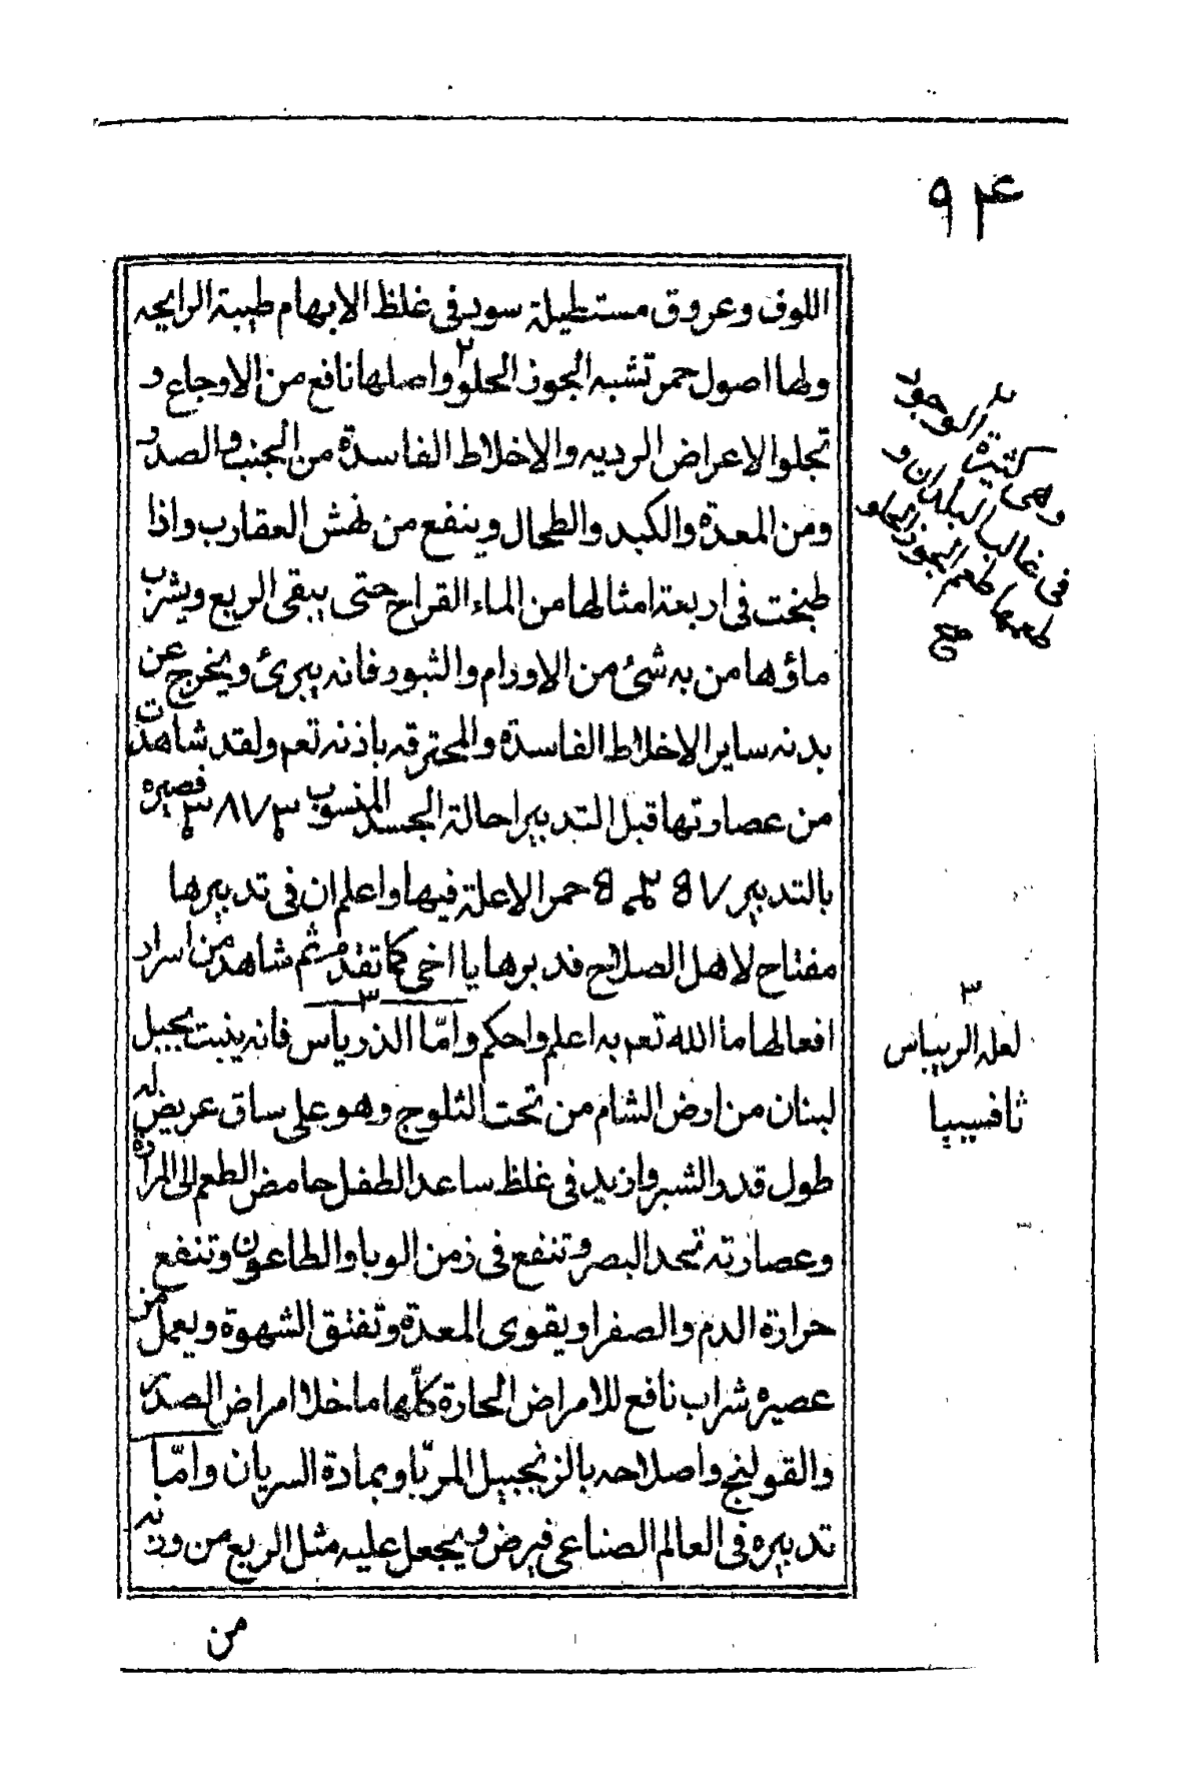 ٩٤
اللوف وعروق مستطيلة سود في غلظ الابهام طيبة الرايحه
ولها اصول حمر تشبه الجوز الحلو٢ واصلها نافع من الاوجاع و
تجلو الاعراض الرديه والاخلاط الفاسدة من الجنب والصدر
ومن المعدة والكبد والطحال وينفع من نهش العقارب واذا
طبخت في اربعة امثالها من الماء القراح حتى يبقى الربع ويشرب
ماؤها من به شئ من الاورام والثبور فانه يبرئ ويخرج عن
بدنه ساير الاخلاط الفاسدة والمحترقه باذنه تعم ولقد شاهدت
من عصارتها قبل التدبير احالة الجسد المنسوب فصيره
بالتدبير حمر الاعلة فيها واعلم ان في تدبيرها
مفتاح لاهل الصلاح فدبرها يا اخي كما تقدم ثم شاهد من اسرار
افعالها ما الله تعم به اعلم واحكم وامّا الذرياس٣ فانه ينبت بجبل
لبنان من ارض الشام من تحت الثلوج وهو على ساق عريض له
طول قدر الشبر وازيد في غلظ ساعد الطفل حامض الطعم الى المرارة
وعصارته تحد البصر وتنفع في زمن الوبا والطاعون وتنفع
حرارة الدم والصفرا ويقوى المعدة وتفتق الشهوة ويعمل من
عصيره شراب نافع للامراض الحارة كلّها ما خلا امراض الصدر
والقولنج واصلاحه بالزنجبيل المربّا وبمادة السريان وامّا
تدبيره في العالم الصناعي فيرض ويجعل عليه مثل الربع من وزنه
من
وهي كثيرة الوجود
في غالب البلدان و
طعمها طعم الجوز الحلو
صح
٣
لعله الريباس
ثافسيا